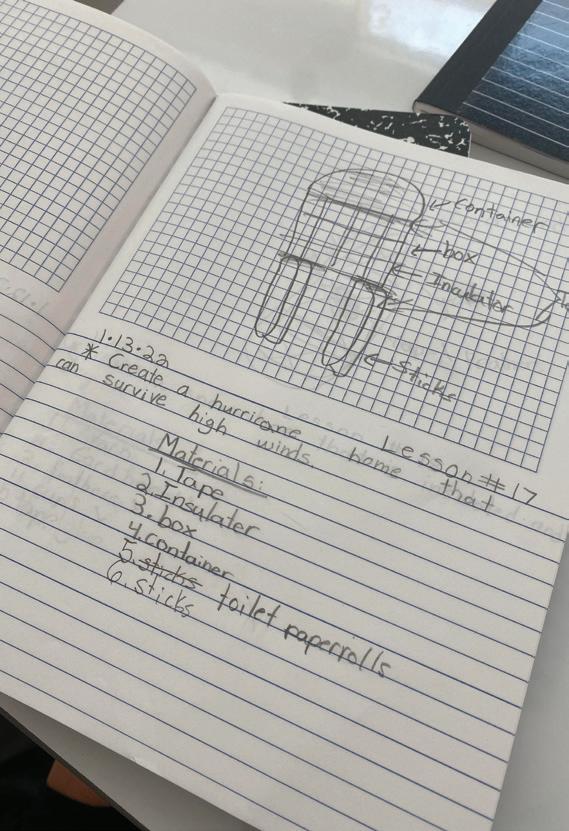 Container
box
Insulater
Sticks
1.13.22
Lesson #17
* Create a hurricane home that
can survive high winds.
Materials:
1. Tape
2. Insulater
3. box
4. container
5. sticks toilet paperrolls
6. sticks